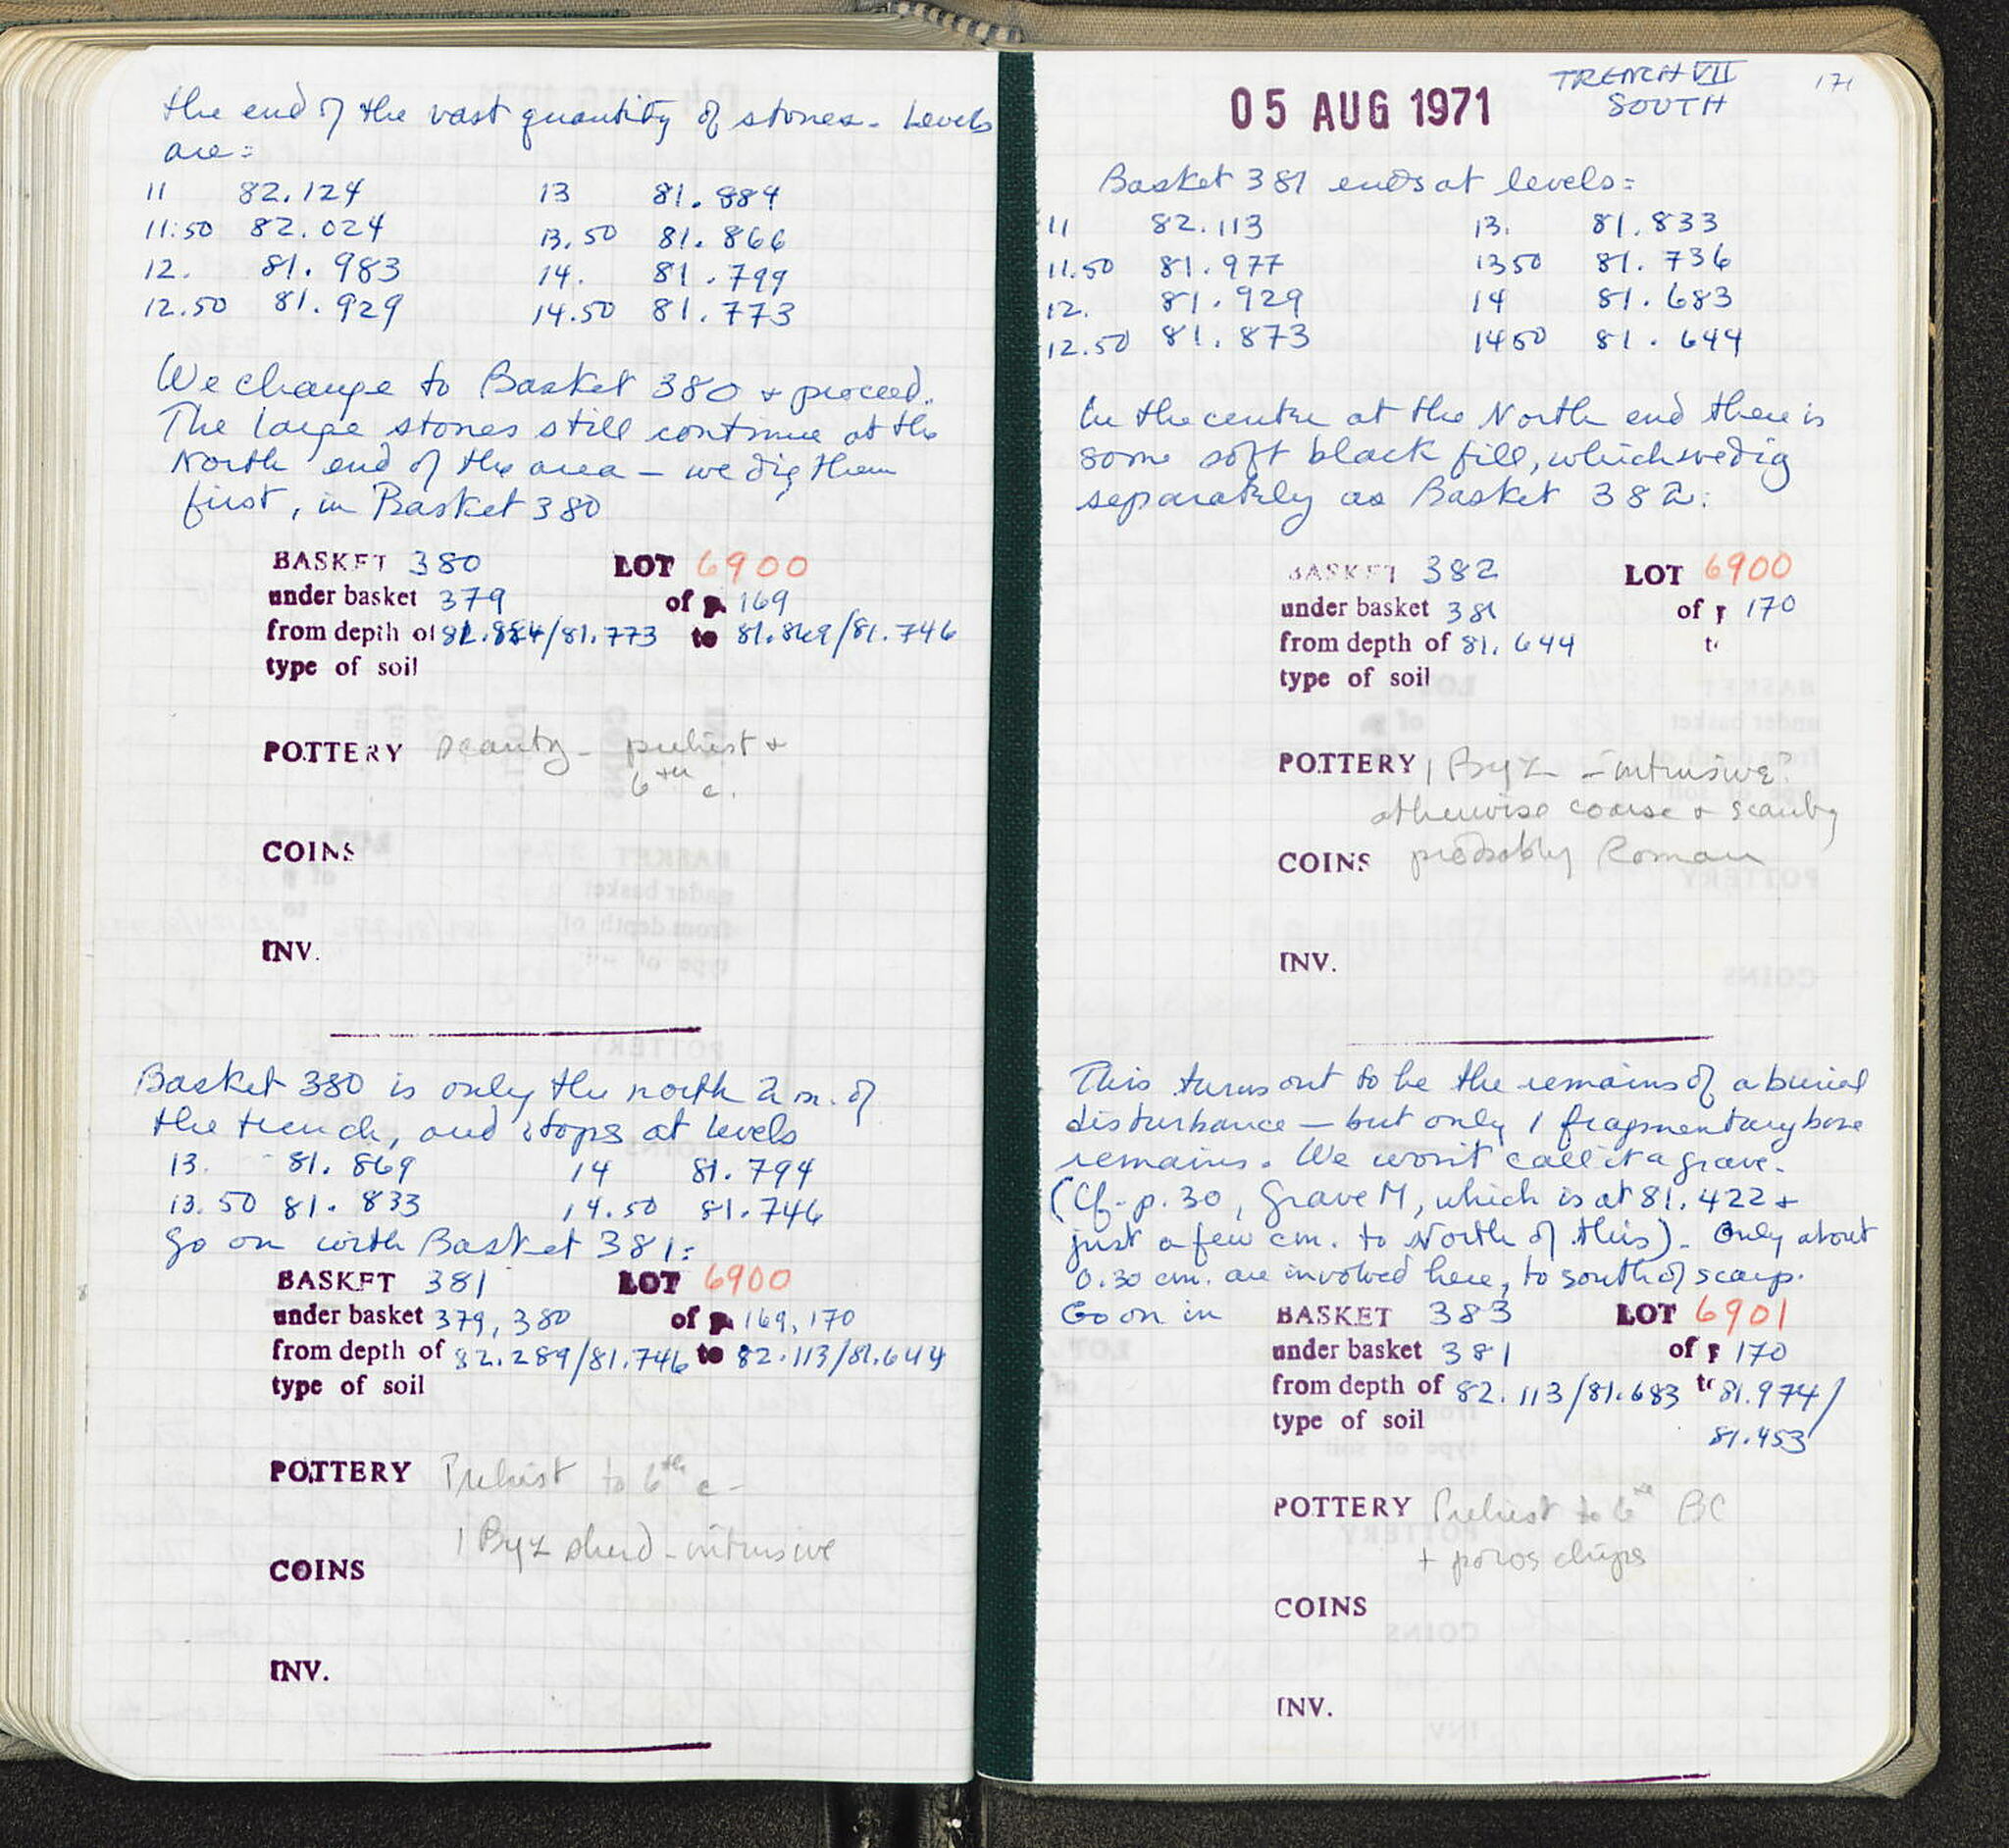 the end of the vast quantity of stones. Levels
are:
11 82.124 13 81.884
11:50 82.024 13.50 81.866
12. 81.983 14. 81.799
12.50 81.929 14.50 81.773
We change to Basket 380 + proceed.
The large stones still continue at the
North end of the area – we dig them
first, in Basket 380
BASKET 380 LOT 6900
under basket 379 of p. 169
from depth of 81.884/81.773 to 81.869/81.746
type of soil
POTTERY scanty – prehist +
6th c.
COINS
INV.
Basket 380 is only the north 2 m. of
the trench, and stops at levels
13. 81.869 14 81.794
13.50 81.833 14.50 81.746
Go on with Basket 381:
BASKET 381 LOT 6900
under basket 379, 380 of p. 169, 170
from depth of 82.289/81.746 to 82.113/81.644
type of soil
POTTERY Prehist to 6th c –
1 Byz sherd – intrusive
COINS
INV.
TRENCH VII 171
05 AUG 1971 SOUTH
Basket 381 ends at levels:
11 82.113 13. 81.833
11.50 81.977 1350 81.736
12. 81.929 14 81.683
12.50 81.873 1450 81.644
In the centre at the North end there is
some soft black fill, which we dig
separately as Basket 382:
BASKET 382 LOT 6900
under basket 381 of p 170
from depth of 81.644 to
type of soil
POTTERY 1 Byz – intrusive?
otherwise coarse + scanty
COINS probably Roman
INV.
This turns out to be the remains of a burial
disturbance – but only 1 fragmentary bone
remains. We won't call it a grave.
(Cf. p. 30, Grave M, which is at 81.422 +
just a few cm. to North of this). Only about
0.30 cm. are involved here, to south of scarp.
Go on in BASKET 383 LOT 6901
under basket 381 of p 170
from depth of 82.113/81.683 to 81.974/
type of soil 81.453
POTTERY Prehist to 6th BC
+ poros chips
COINS
INV.